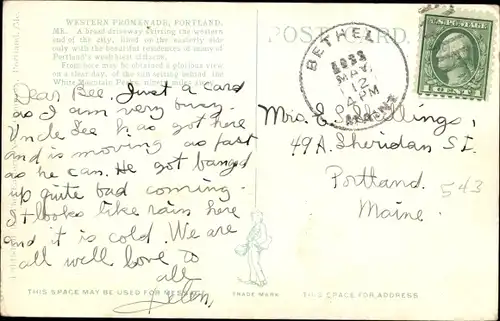 WESTERN PROMENADE, PORTLAND,
ME. A broad driveway skirting the western
end of the city, lined on the easterly side
only with the beautiful residences of many of
Portland's
From here may be obtained a glorious view
on a clear day, of the sun setting behind the
White Mountain Peaks, ninety miles
Dear Bee. Just a card
as I am very busy.
Uncle Lee has got here
and is moving as fast
as he can. He got banged
up quite bad coming.
It looks like rain here
and it is cold. We are
all well love to
all
Helen.
THIS SPACE MAY BE USED FOR MESSAGE
TRADE MARK
POST CARD.
BETHEL
MAY
12
4 PM
MAINE
1 CENT 1
Mrs. E. S. Billings,
49A. Sheridan St.
Portland.
Maine.
543
THIS SPACE IS FOR ADDRESS